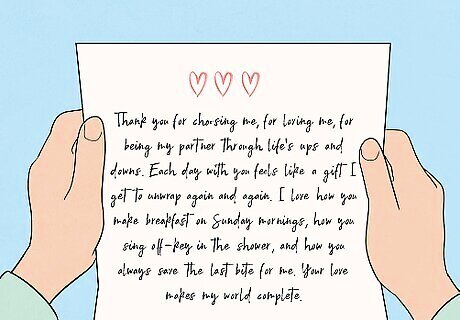 Thank you for choosing me, for loving me, for
being my partner through life's ups and
downs. Each day with you feels like a gift I
get to unwrap again and again. I love how you
make breakfast on Sunday mornings, how you
sing off-key in the shower, and how you
always save the last bite for me. Your love
makes my world complete.